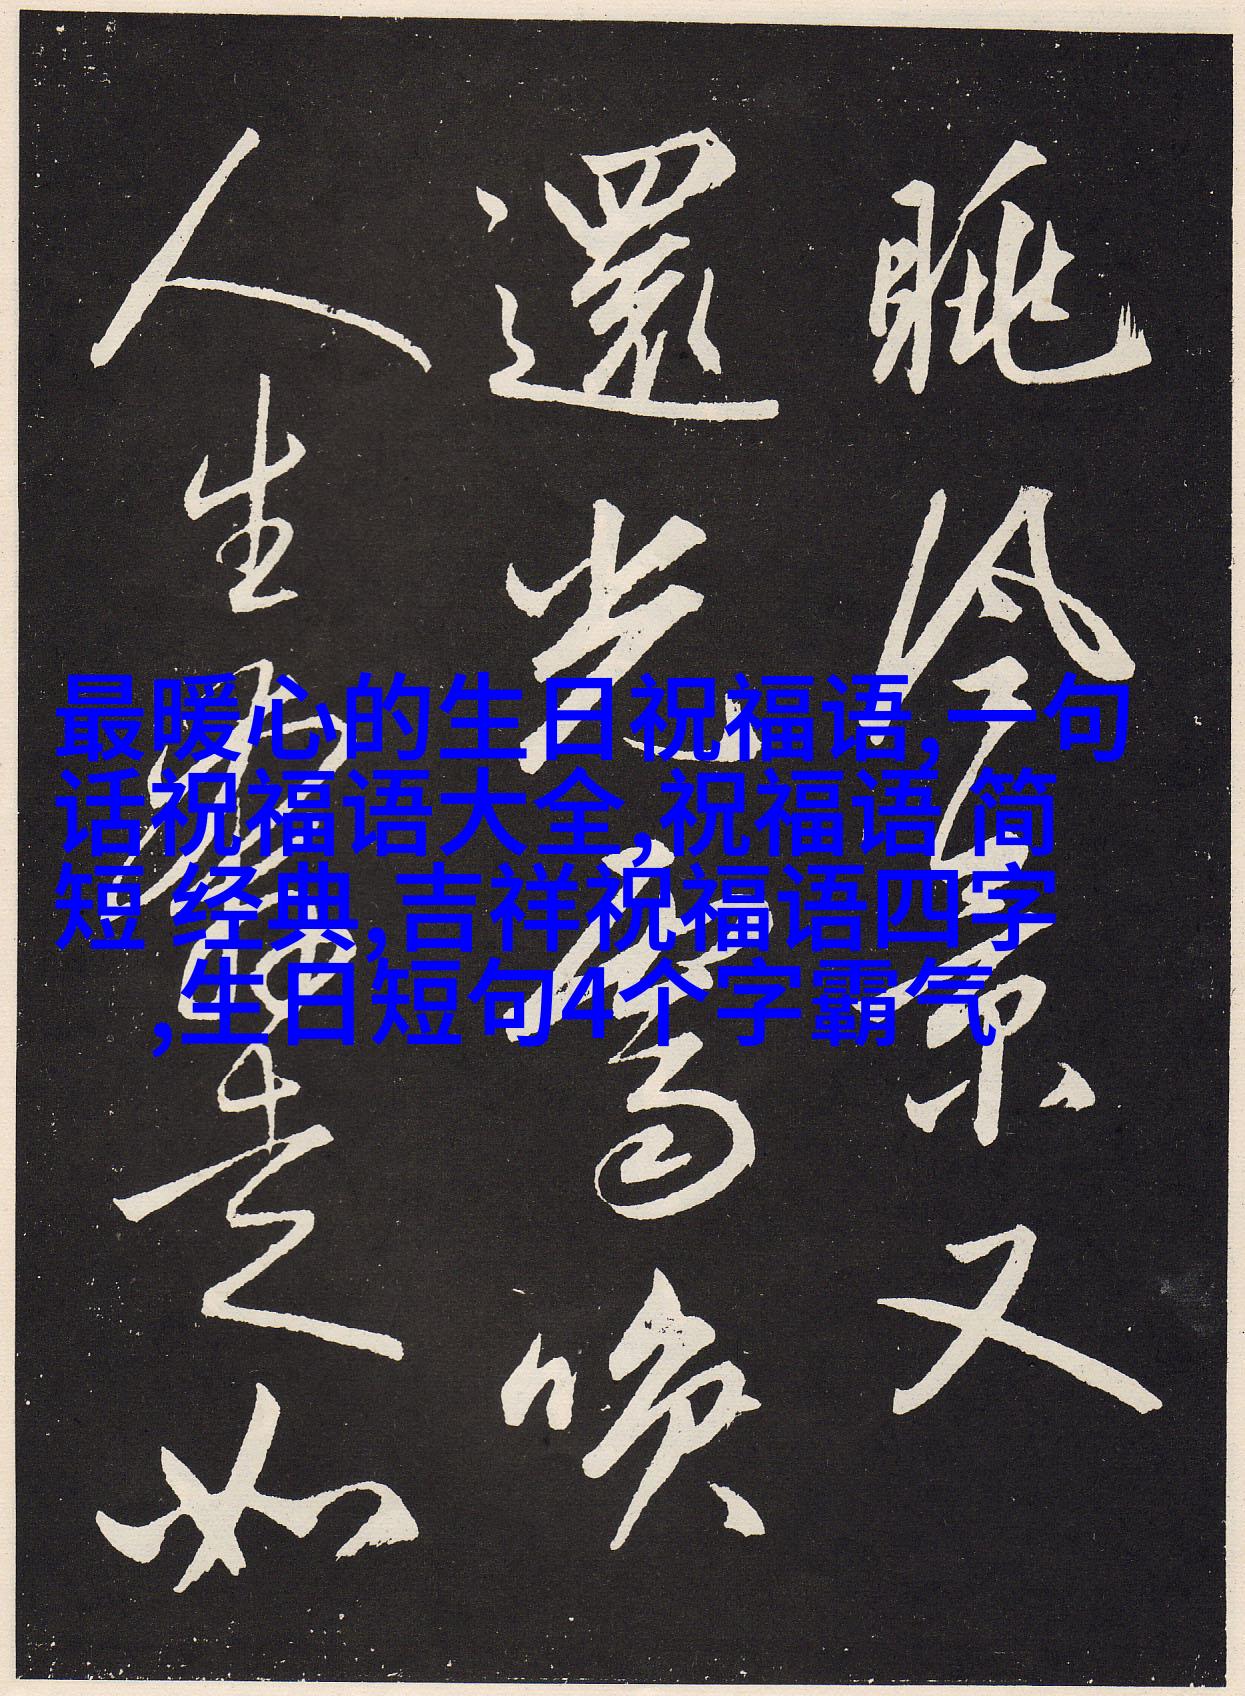 眺 又
還 光 喚
人生 走如
最暖心的生日祝福语, 一句
话祝福语大全,祝福语 简
短 经典,吉祥祝福语四字
,生日短句4个字霸气